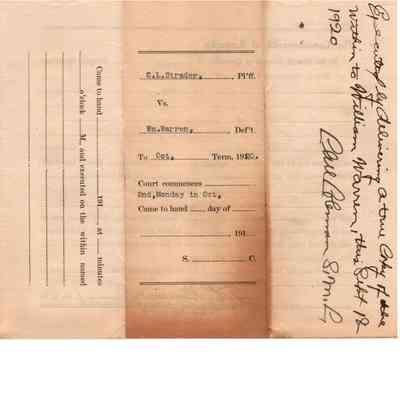 Came to hand 191 at minutes
o'clock M., and executed on the within named
C.L.Strader, Pl'ff.
Vs.
Wm.Warren, Def't.
To Oct. Term, 1920.
Court commences
2nd,Monday in Oct.
Came to hand day of
, 191
S. C.
Executed by delivering a true Copy of the
within to William Warren, this Sept 18
1920